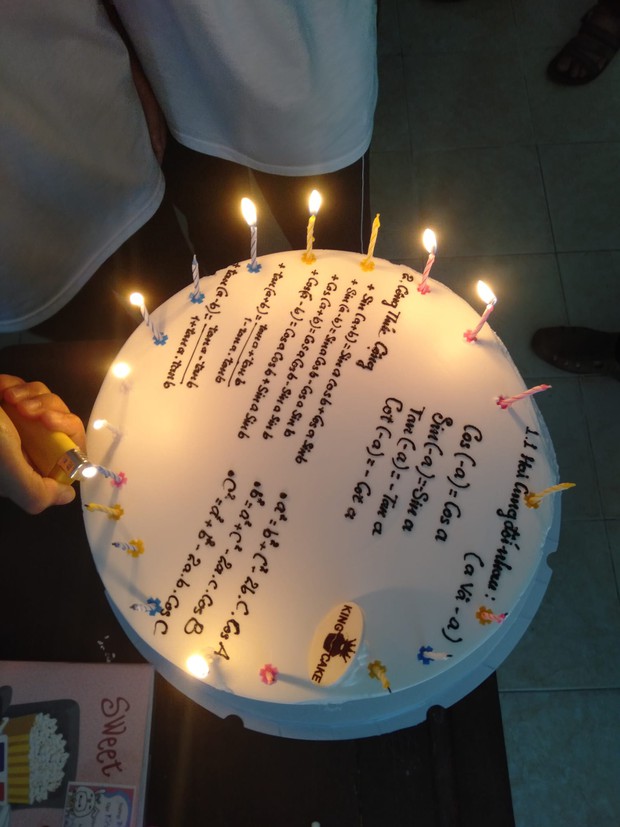 1.1 Hai Cung đối nhau :
(a Và -a)
Cos(-a)=Cos a
Sin(-a)=Sin a
Tan(-a)=-Tan a
Cot(-a)=-Cot a
2. Công Thức Cộng
+ Sin(a+b)=Sina Cosb+Cosa Sinb
+ Sin(a-b)=Sina Cosb-Cosa Sinb
+ Cos(a+b)=Cosa Cosb-Sina Sinb
+ Cos(a-b)=Cosa Cosb+Sina Sinb
+ tan(a+b)= tana+tanb
1-tana.tanb
+ tan(a-b)= tana-tanb
1+tana.tanb
• a²=b²+c²-2b.c.CosA
• b²=a²+c²-2a.c.CosB
• c²=a²+b²-2a.b.CosC
KING CAKE
SWEET